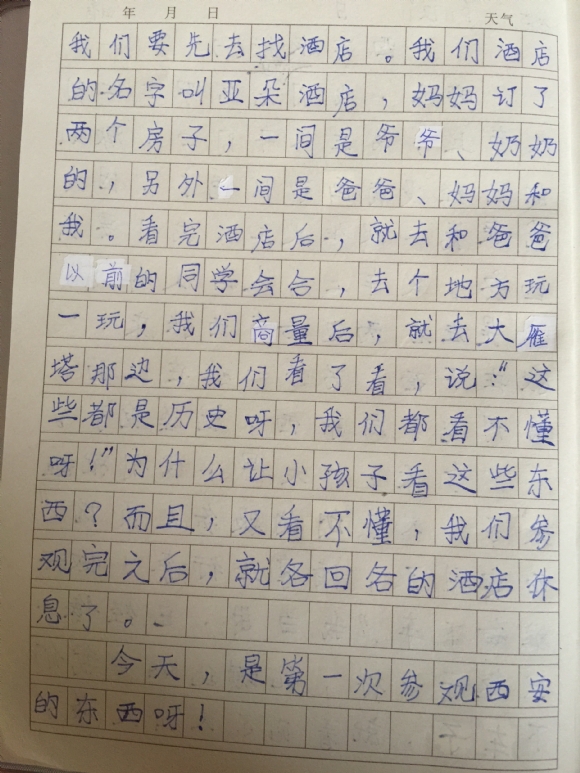 年 月 日 天气
我们要先去找酒店。我们酒店
的名字叫亚朵酒店，妈妈订了
两个房子，一间是爷爷、奶奶
的，另外一间是爸爸、妈妈和
我。看完酒店后，就去和爸爸
以前的同学会合，去个地方玩
一玩，我们商量后，就去大雁
塔那边，我们看了看，说："这
些都是历史呀，我们都看不懂
呀！"为什么让小孩子看这些东
西？而且，又看不懂，我们参
观完之后，就各回各的酒店休
息了。
今天，是第一次参观西安
的东西呀！